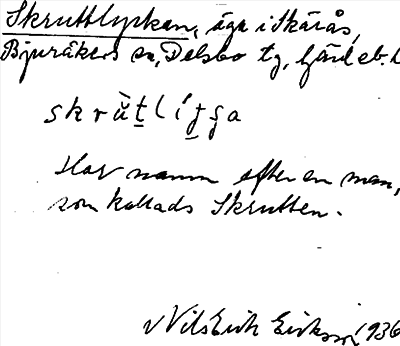 Skruttlyckan, äga i Skärås,
Bjuråkers sn, Delsbo tg,
skrùt̲lít̲g̲a
Har namn efter en man,
som kallads Skrutten.
v Nils Erik Eriksson 1936